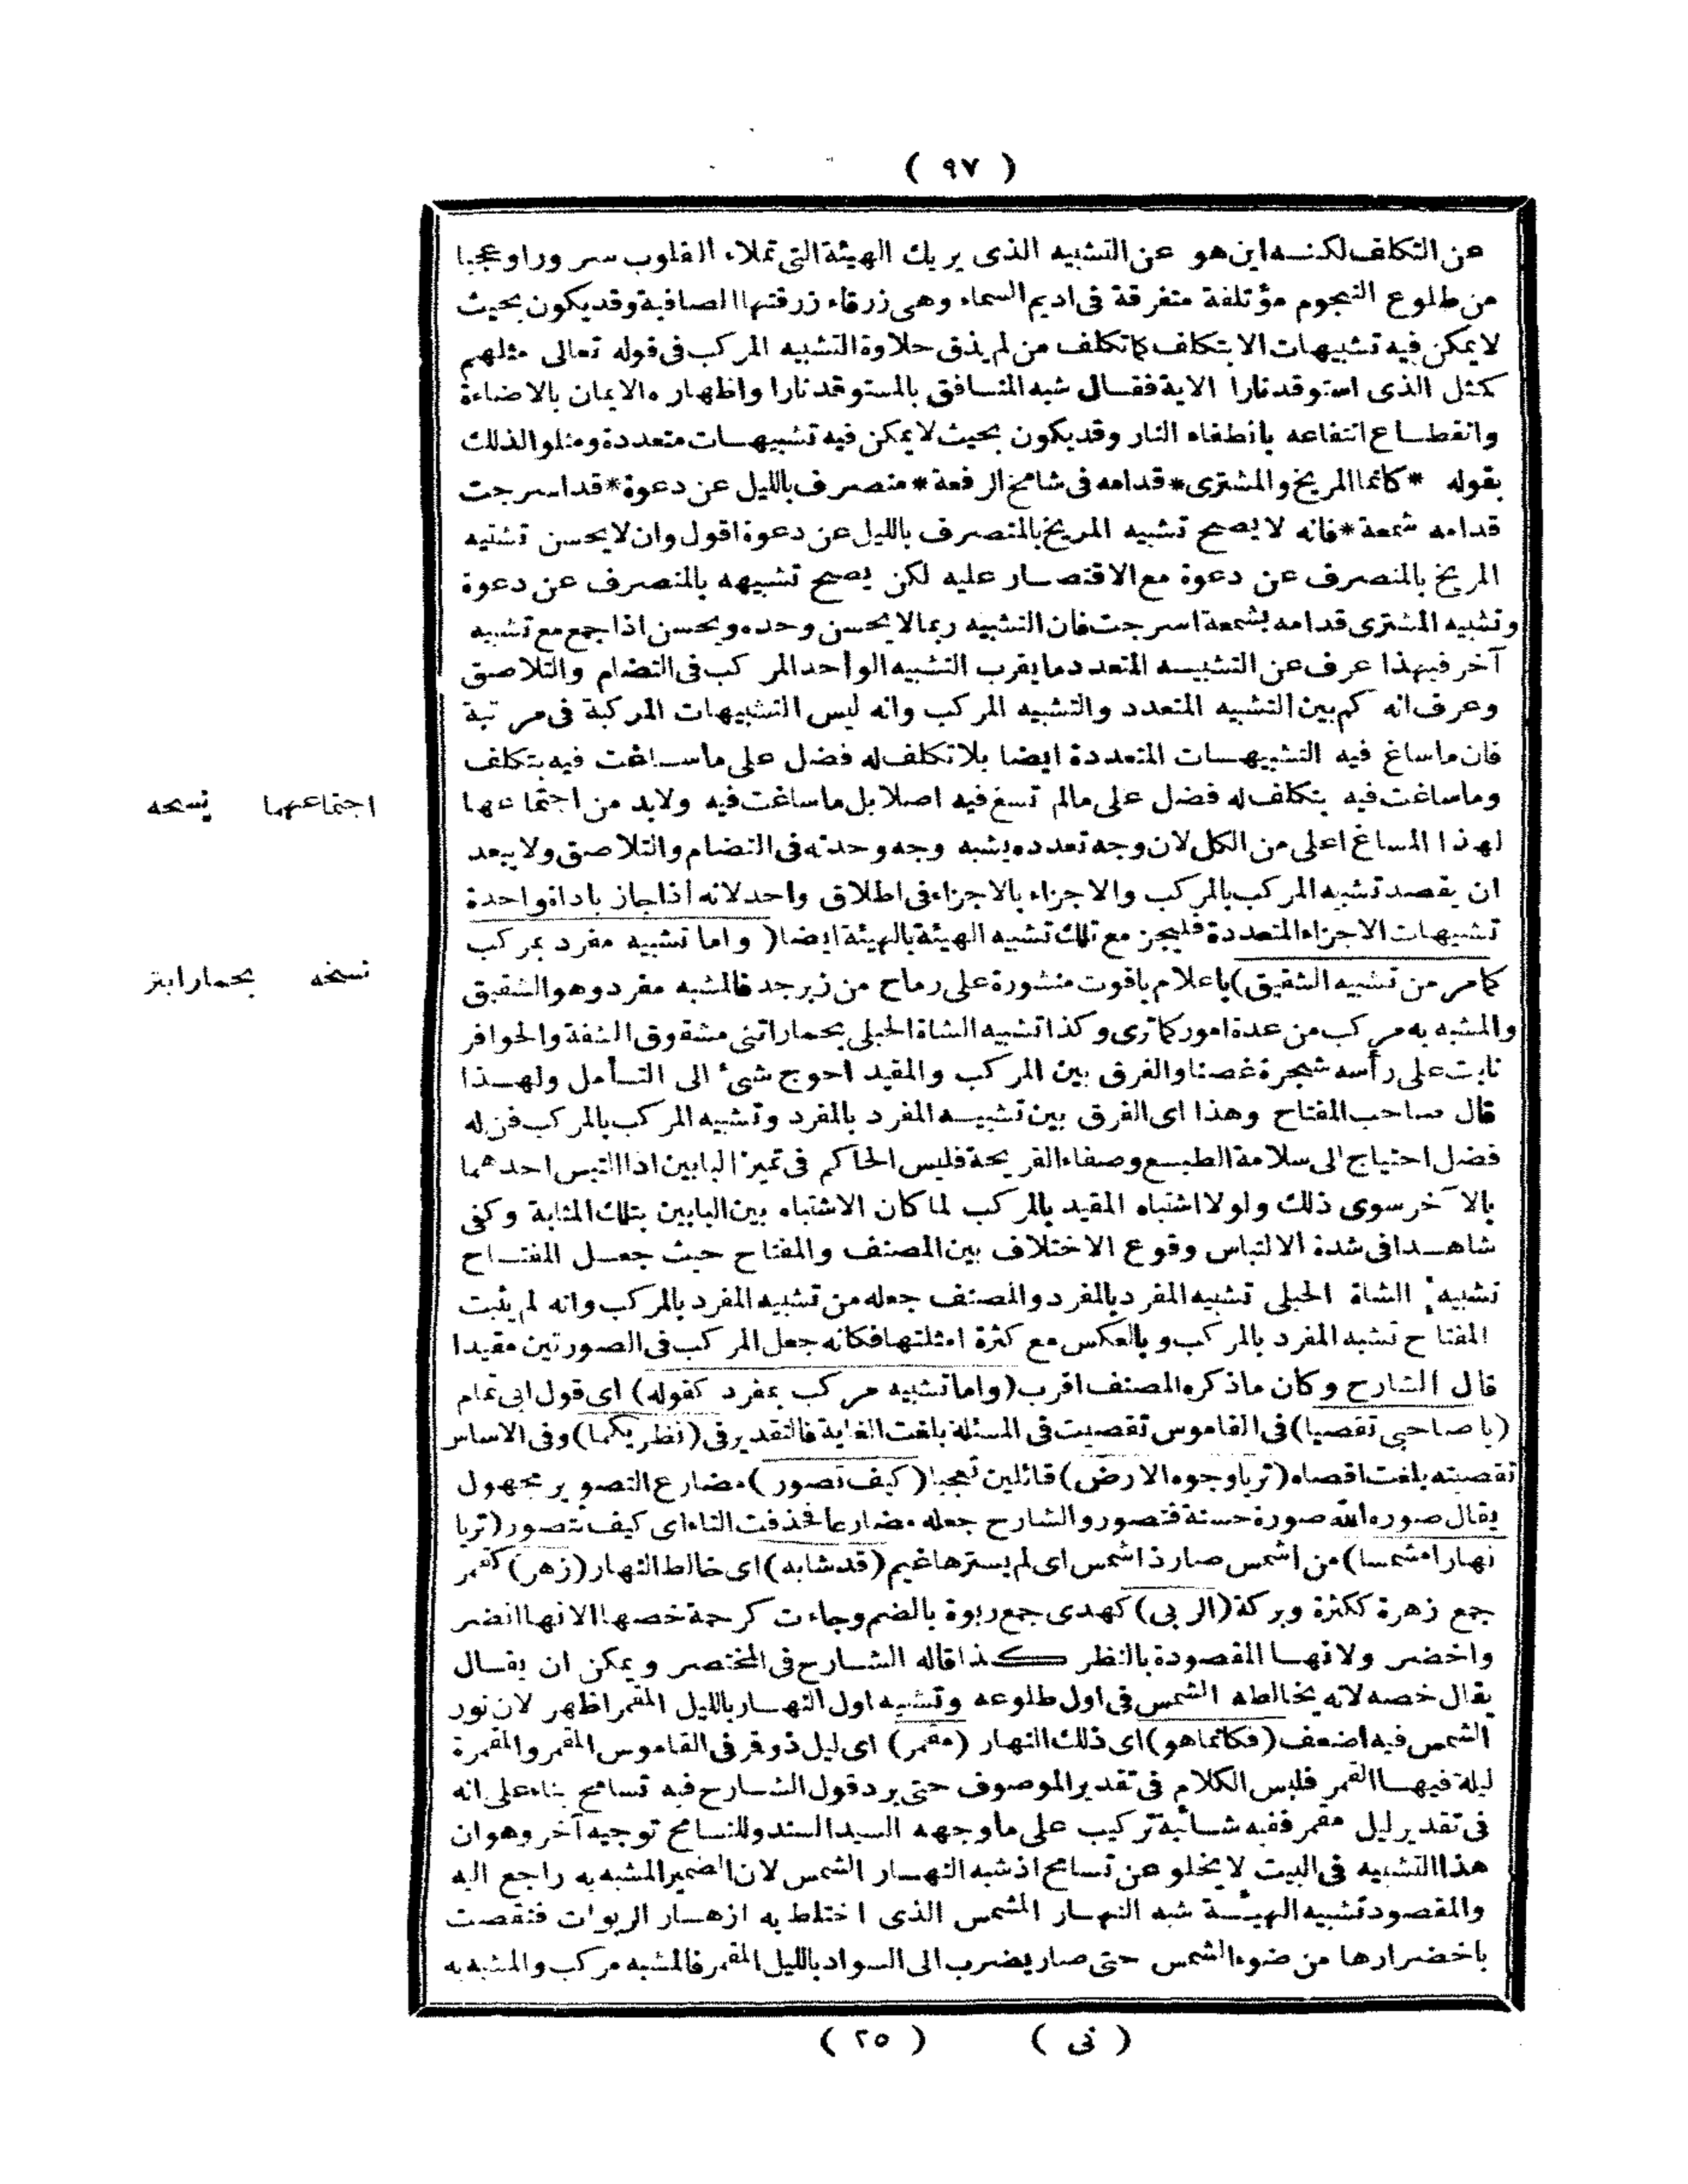 ( ٩٧ )
عن التكلف لكنه اين هو عن التشبيه الذى يريك الهيئة التى تملاء القلوب سرورا وعجبا
من طلوع النجوم مؤتلفة متفرقة فى اديم السماء وهى زرقاء زرقتها الصافية وقد يكون بحيث
لا يمكن فيه تشبيهات الا بتكلف كما تكلف من لم يذق حلاوة التشبيه المركب فى قوله تعالى مثلهم
كمثل الذى استوقد نارا الاية فقال شبه المنافق بالمستوقد نارا واظهاره الايمان بالاضاءة
وانقطاع انتفاعه بانطفاء النار وقد يكون بحيث لا يمكن فيه تشبيهات متعددة ومثلوا لذلك
بقوله * كانما المريخ والمشترى * قدامه فى شامخ الرفعة * منصرف بالليل عن دعوة * قد اسرجت
قدامه شمعة * فانه لا يصح تشبيه المريخ بالمنصرف بالليل عن دعوة اقول وان لا يحسن تشبيه
المريخ بالمنصرف عن دعوة مع الاقتصار عليه لكن يصح تشبيهه بالمنصرف عن دعوة
وتشبيه المشترى قدامه بشمعة اسرجت فان التشبيه ربما لا يحسن وحده ويحسن اذا جمع مع تشبيه
آخر فبهذا عرف عن التشبيه المتعدد ما يقرب التشبيه الواحد المركب فى التضام والتلاصق
وعرف انه كم بين التشبيه المتعدد والتشبيه المركب وانه ليس التشبيهات المركبة فى مرتبة
فان ما ساغ فيه التشبيهات المتعددة ايضا بلا تكلف له فضل على ما ساغت فيه بتكلف
وما ساغت فيه بتكلف له فضل على مالم تسغ فيه اصلا بل ما ساغت فيه ولابد من اجتماعها
اجتماعهما نسخه
لهذا المساغ اعلى من الكل لان وجه تعدده يشبه وجه وحدته فى التضام والتلاصق ولا يبعد
ان يقصد تشبيه المركب بالمركب والاجزاء بالاجزاء فى اطلاق واحد لانه اذا جاز باداة واحدة
تشبيهات الاجزاء المتعددة فليجز مع تلك تشبيه الهيئة بالهيئة ايضا ( واما تشبيه مفرد بمركب
كما مر من تشبيه الشقيق ) باعلام ياقوت منشورة على رماح من زبرجد فالمشبه مفرد وهو الشقيق
نسخه بحمار ابتر
والمشبه به مركب من عدة امور كما ترى وكذا تشبيه الشاة الجبلى بحمار اتنى مشقوق الشفة والحوافر
نابت على رأسه شجرة غصنا والفرق بين المركب والمقيد احوج شئ الى التأمل ولهذا
قال صاحب المفتاح وهذا اى الفرق بين تشبيه المفرد بالمفرد وتشبيه المركب بالمركب فن له
فضل احتياج الى سلامة الطبع وصفاء القريحة فليس الحاكم فى تميز البابين اذا التبس احدهما
بالآخر سوى ذلك ولولا اشتباه المقيد بالمركب لما كان الاشتباه بين البابين بتلك المثابة وكفى
شاهدا فى شدة الالتباس وقوع الاختلاف بين المصنف والمفتاح حيث جعل المفتاح
تشبيه الشاة الجبلى تشبيه المفرد بالمفرد والمصنف جعله من تشبيه المفرد بالمركب وانه لم يثبت
المفتاح تشبه المفرد بالمركب وبالعكس مع كثرة امثلتها فكانه جعل المركب فى الصورتين مقيدا
قال الشارح وكان ما ذكره المصنف اقرب ( واما تشبيه مركب بمفرد كقوله ) اى قول ابى تمام
( يا صاحبى تقصيا ) فى القاموس تقصيت فى المسئلة بلغت الغاية فالتقدير فى ( نظريكما ) وفى الاساس
تقصيته بلغت اقصاه ( تريا وجوه الارض ) قائلين تعجبا ( كيف تصور ) مضارع التصوير مجهول
يقال صوره الله صورة حسنة فتصور والشارح جعله مضارعا فحذفت التاء اى كيف تتصور ( تريا
نهارا مشمسا ) من اشمس صار ذا شمس اى لم يسترها غيم ( قد شابه ) اى خالط النهار ( زهر ) كتمر
جمع زهرة ككثرة وبركة ( الربى ) كهدى جمع ربوة بالضم وجاءت كرحمة خصها لانها انضر
واخضر ولانها المقصودة بالنظر كذا قاله الشارح فى المختصر ويمكن ان يقال
يقال خصه لانه يخالطه الشمس فى اول طلوعه وتشبيه اول النهار بالليل المقمر اظهر لان نور
الشمس فيه اضعف ( فكانما هو ) اى ذلك النهار ( مقمر ) اى ليل ذو قمر فى القاموس المقمر والمقمرة
ليلة فيها القمر فليس الكلام فى تقدير الموصوف حتى يرد قول الشارح فيه تسامح بناء على انه
فى تقدير ليل مقمر ففيه شائبة تركيب على ما وجهه السيد السند وللتسامح توجيه آخر وهو ان
هذا التشبيه فى البيت لا يخلو عن تسامح اذ شبه النهار الشمس لان الضمير المشبه به راجع اليه
والمقصود تشبيه الهيئة شبه النهار المشمس الذى اختلط به ازهار الربوات فنقصت
باخضرارها من ضوء الشمس حتى صار يضرب الى السواد بالليل المقمر فالمشبه مركب والمشبه به
( نى ) ( ٢٥ )